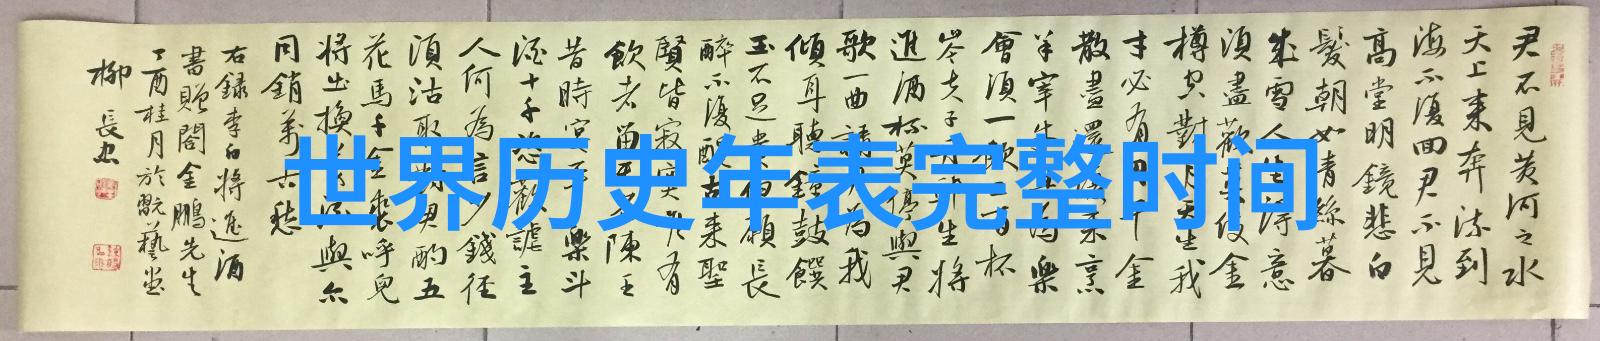 世界历史年表完整时间
君不見黄河之水
天上来奔流到
海不復回君不見
高堂明鏡悲白
髮朝如青絲暮
成雪人生得意
須盡歡莫使金
樽空對月天生我
才必有用千金
散盡還復来烹
羊宰牛且為樂
會須一飲三百杯
岑夫子丹丘生將
進酒杯莫停與君
歌一曲請君為我
傾耳聽鐘鼓饌
玉不足貴但願長
醉不復醒古来聖
賢皆寂寞惟有
飲者留其名陳王
昔時宴平樂斗
酒十千恣歡謔主
人何為言少錢徑
須沽取對君酌五
花馬千金裘呼兒
將出換美酒與尔
同銷萬古愁
右録李白將進酒
書贈閻金鵬先生
丁酉桂月於翫藝堂
柳長忠